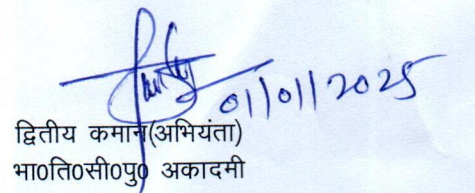 01/01/2025
द्वितीय कमान(अभियंता)
भा0ति0सी0पु0 अकादमी